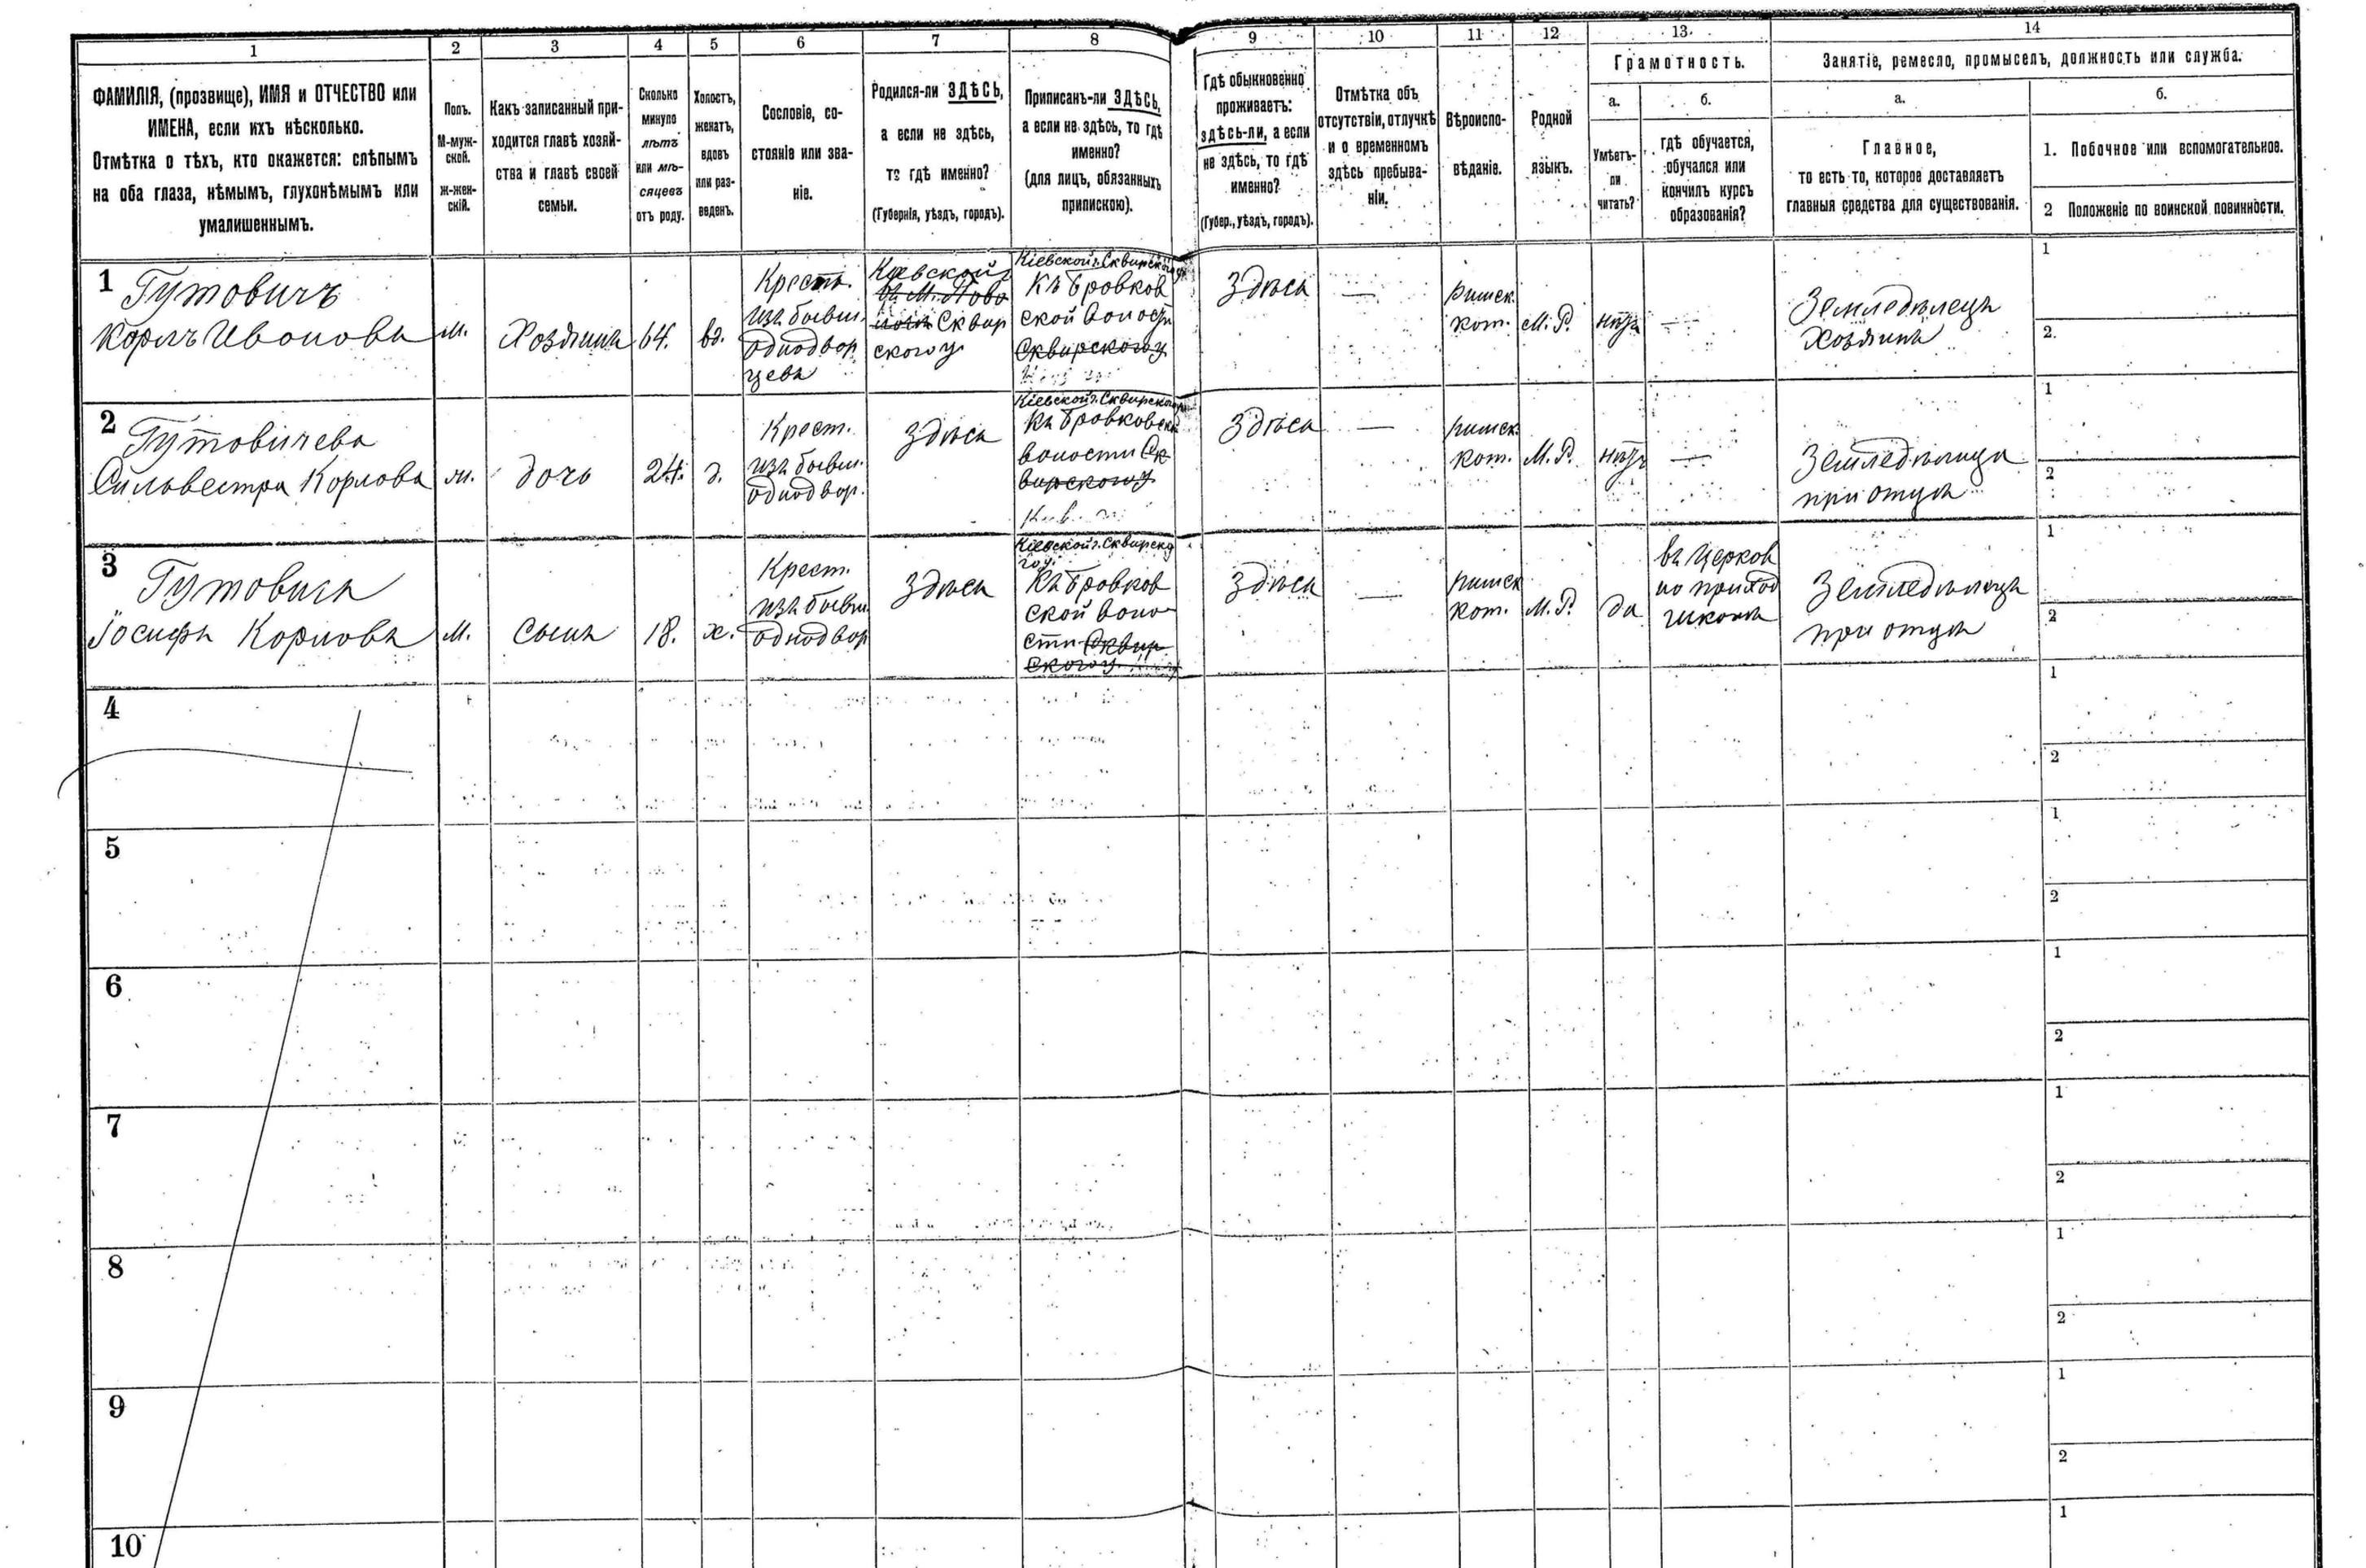 1 2 3 4 5 6 7 8 9 10 11 12 13 14
ФАМИЛІЯ, (прозвище), ИМЯ и ОТЧЕСТВО или
ИМЕНА, если ихъ нѣсколько.
Отмѣтка о тѣхъ, кто окажется: слѣпымъ
на оба глаза, нѣмымъ, глухонѣмымъ или
умалишеннымъ.
Полъ.
М-муж-
ской.
ж-жен-
скій.
Какъ записанный при-
ходится главѣ хозяй-
ства и главѣ своей
семьи.
Сколько
минуло
лѣтъ
или мѣ-
сяцевъ
отъ роду.
Холостъ,
женатъ,
вдовъ
или раз-
веденъ.
Сословіе, со-
стояніе или зва-
ніе.
Родился-ли ЗДѢСЬ,
а если не здѣсь,
то гдѣ именно?
(Губернія, уѣздъ, городъ).
Приписанъ-ли ЗДѢСЬ,
а если не здѣсь, то гдѣ
именно?
(для лицъ, обязанныхъ
припискою).
Гдѣ обыкновенно
проживаетъ:
здѣсь-ли, а если
не здѣсь, то гдѣ
именно?
(Губер., уѣздъ, городъ).
Отмѣтка объ
отсутствіи, отлучкѣ
и о временномъ
здѣсь пребыва-
ніи.
Вѣроиспо-
вѣданіе.
Родной
языкъ.
Грамотность.
а.
Умѣетъ-
ли
читать?
б.
гдѣ обучается,
обучался или
кончилъ курсъ
образованія?
Занятіе, ремесло, промыселъ, должность или служба.
а.
Главное,
то есть то, которое доставляетъ
главныя средства для существованія.
б.
1. Побочное или вспомогательное.
2 Положеніе по воинской повинности.
1
Гутовичъ
Корлъ Ивоновъ
м.
Хозяинъ
64.
вд.
Крестъ.
изъ бывш.
однодвор
цевъ
Кіевской г
въ М. Ново
Сквир
ского у.
Кіевской г. Сквирского у
Къ Бровков
ской волости
Сквирского у
Здѣсь
—
римск.
кот.
М. Р.
нѣтъ
—
Земледѣлецъ
Хозяинъ
1
2.
2
Гутовичева
Сильвестра Корлова
м.
дочь
24.
д.
Крест.
изъ бывш.
однодвор.
здѣсь
Кіевской г. Сквирского у
Къ Бровковской
волости Ск
вирского у
Здѣсь
—
римск.
кот.
М. Р.
нѣтъ
—
Земледѣлица
при отцѣ
1
2
3
Гутовичъ
Іосифъ Корловъ
м.
Сынъ
18.
х.
Крест.
изъ бывш.
однодвор
здѣсь
Кіевской г. Сквирско
го у.
Къ Бровков
ской воло
сти Сквир
ского у.
Здѣсь
—
римск
кот.
М. Р.
да
въ Церков
но приход
школѣ
Земледѣлецъ
при отцѣ
1
2
4
1
2
5
1
2
6
1
2
7
1
2
8
1
2
9
1
2
10
1